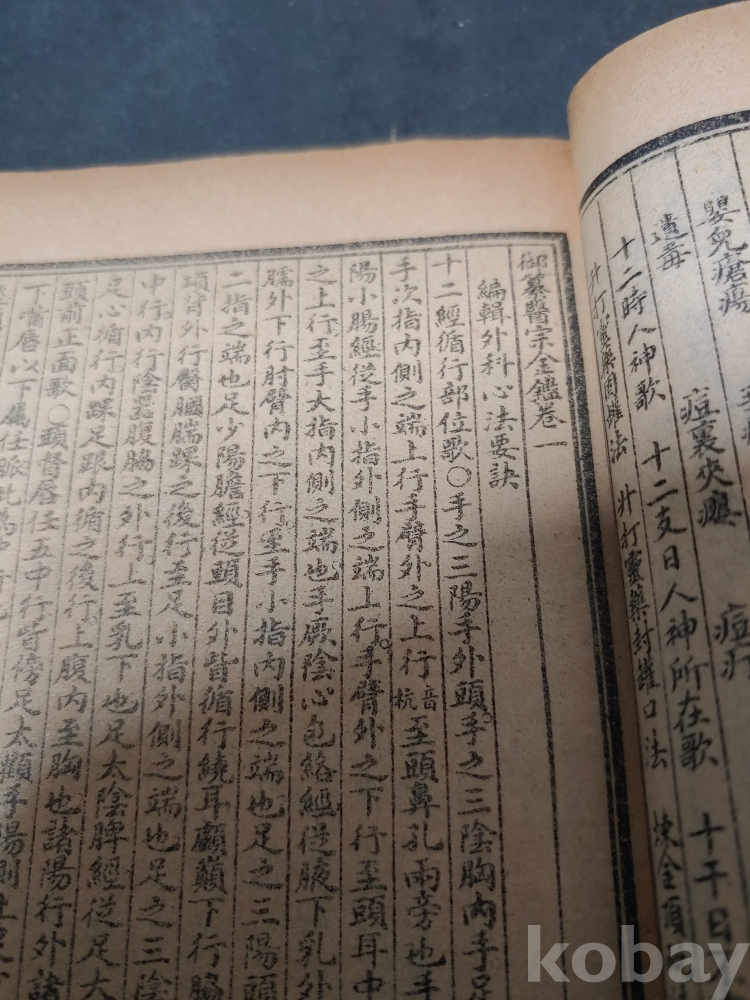 嬰兒瘡瘍
痘裏夾癍
痘疔
遺毒
十二時人神歌 十二支日人神所在歌 十干日
升打靈藥固罐法 升打靈藥封罐口法 煉金頂
御纂醫宗金鑑卷一
編輯外科心法要訣
十二經循行部位歌○手之三陽手外頭。手之三陰胸內手足
手次指內側之端上行手臂外之上行音杭至頭鼻孔兩旁也手
陽小腸經從手小指外側之端上行。手臂外之下行至頭耳中
之上行。至手大指內側之端也手厥陰心包絡經從腋下乳外
臑外下行肘臂內之下行。至手小指內側之端也足之三陽頭
二指之端也足少陽膽經從頭目外眥循行繞耳顱巔下行脇
項背外行臀膕腨踝之後行至足小指外側之端也足之三陰
中行。內行陰器腹脇之外行。上至乳下也足太陰脾經從足大
足心循行。內踝足跟內循之後行。上腹內至胸也諸陽行外諸
頭前正面歌○頭督唇任五中行眥傍足太顴手陽
下嘴唇以下屬任脈